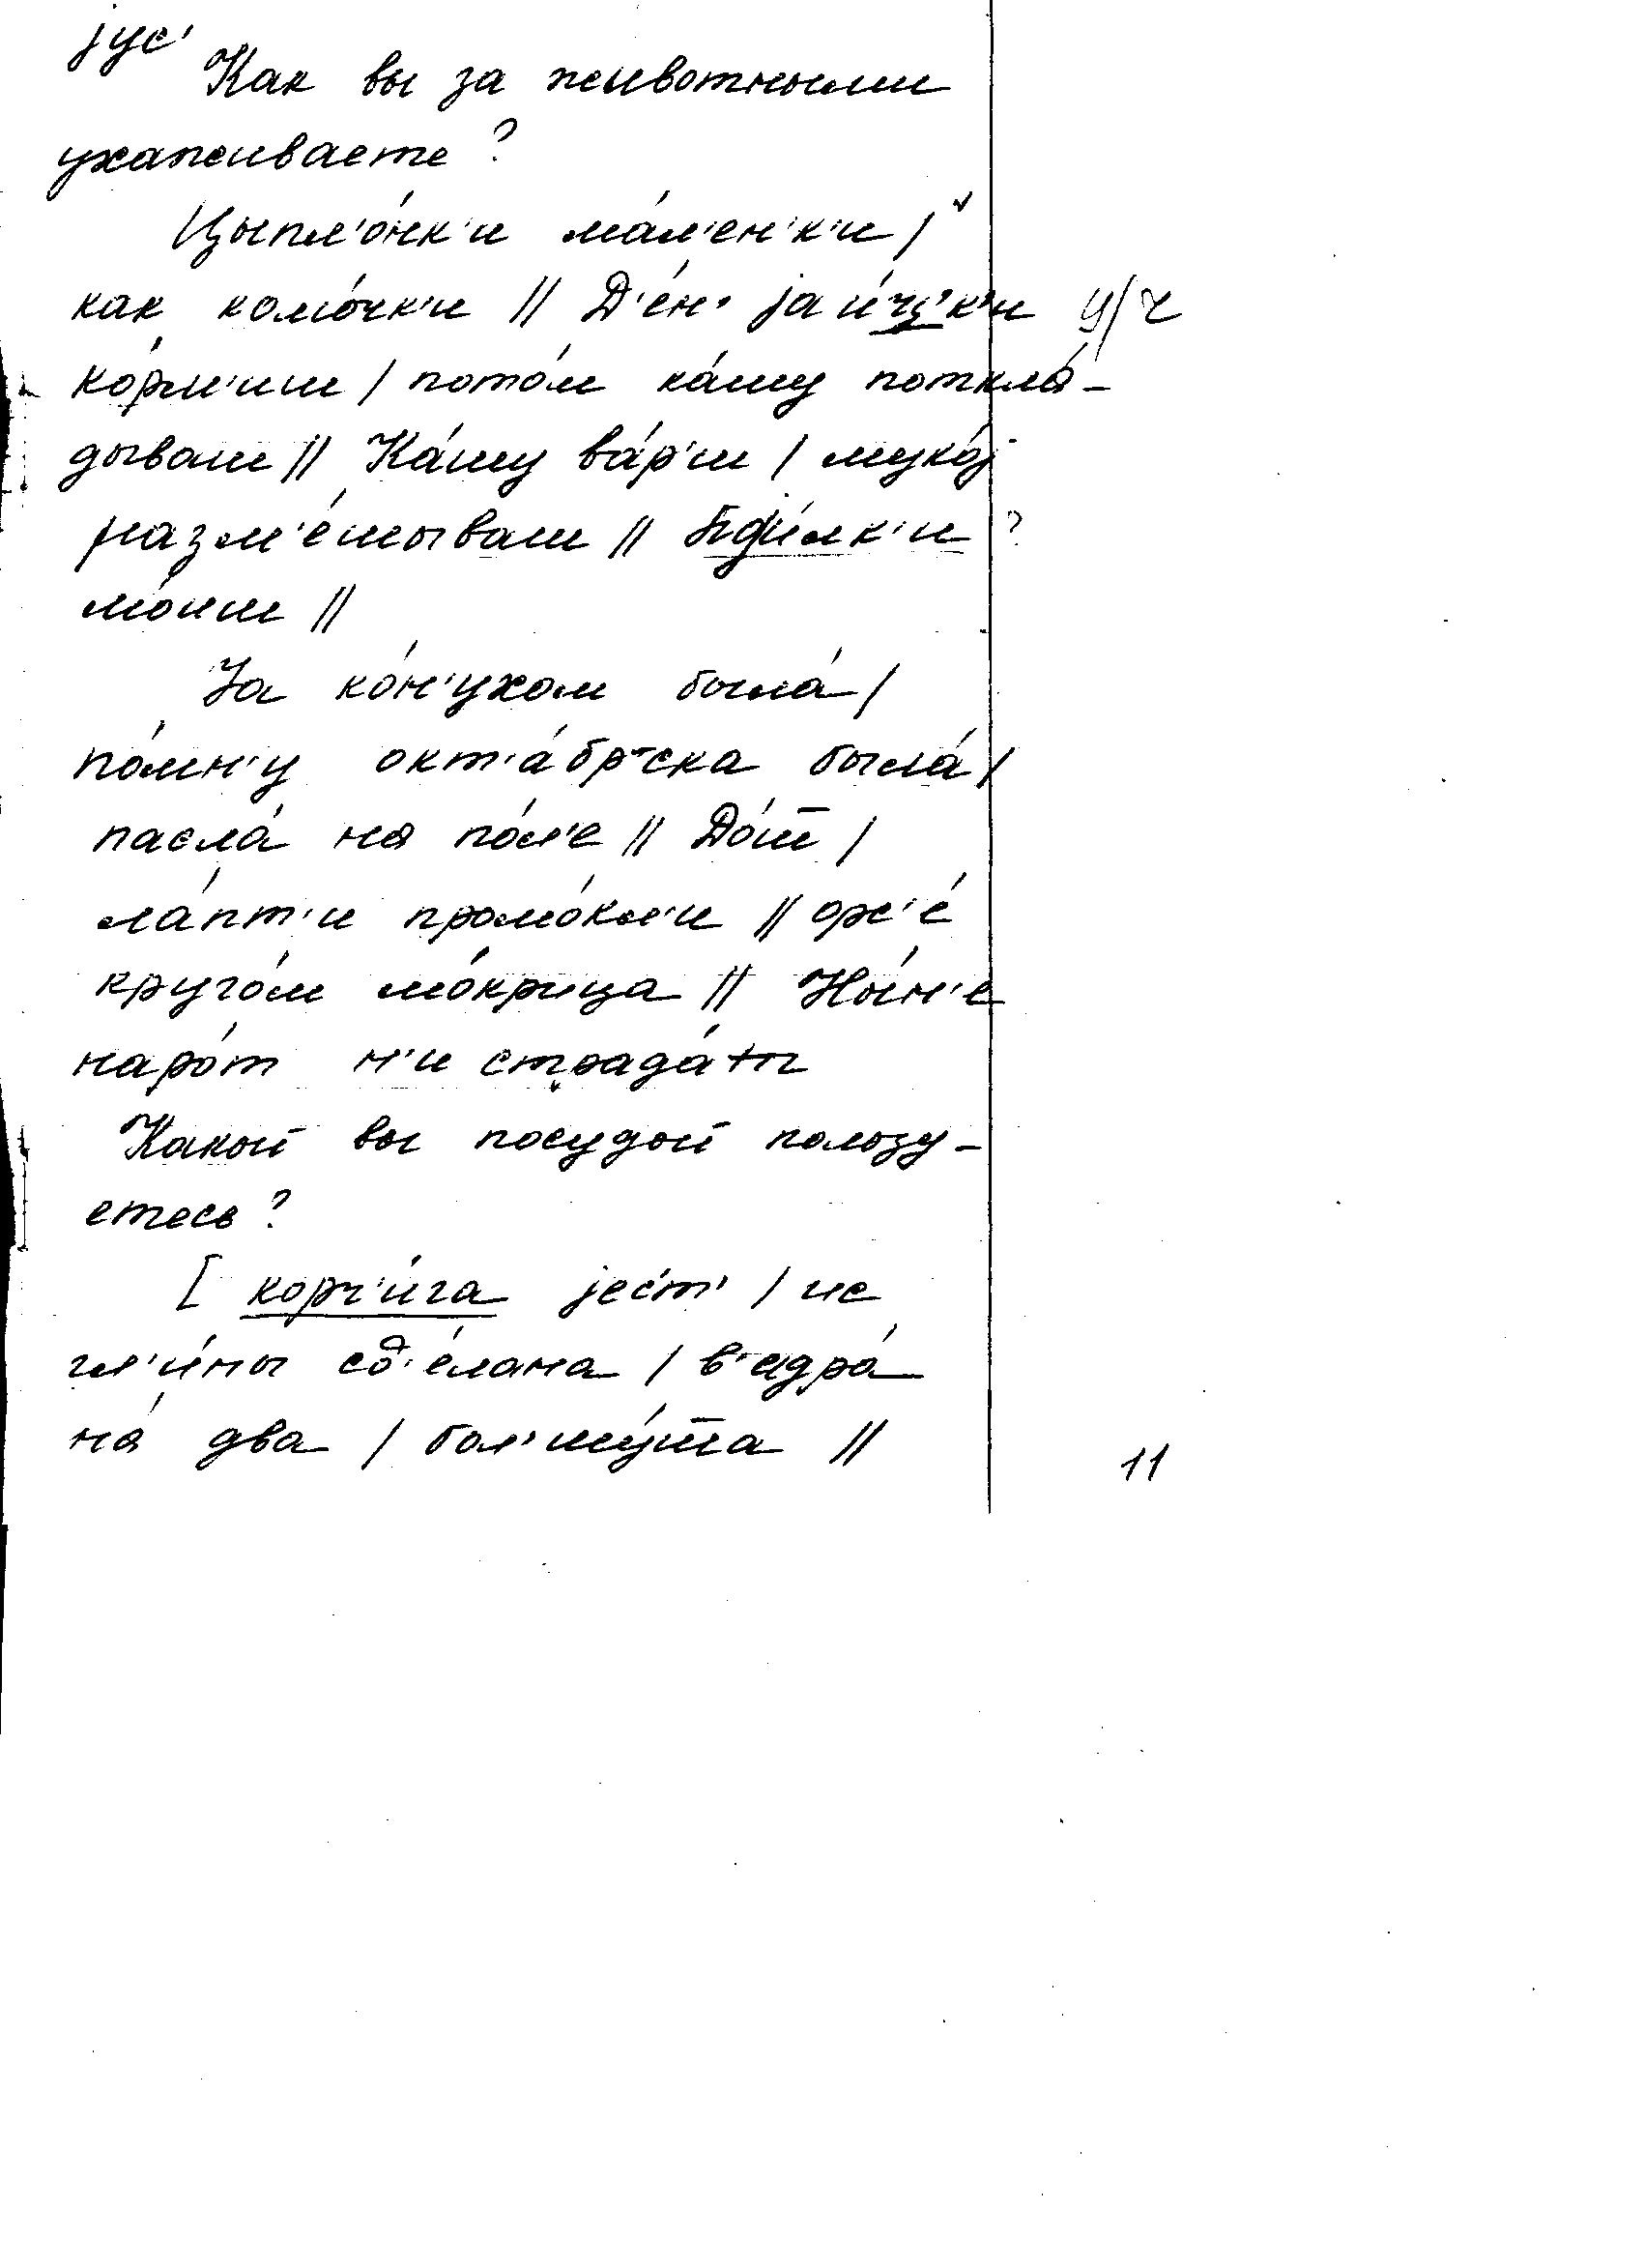 jус'
Как вы за животными
ухаживаете?
Цыпл'о́нк'и ма́л'ен'к'и |
как комо́чк'и || Д'е́н' jаи́чк'и ц/ч
ко́рм'иш | пото́м ка́шу поткла́-
дываш || Ка́шу ва́р'ш | муко́j
разм'е́шываш || ?
мо́иш ||
За ко́н'ухом была́ |
по́мн'у окт'а́бр'ска была́ |
пасла́ на по́л'е || До́ш̅ |
ла́пт'и промо́кл'и || орж'е́
круго́м мо́крица || Ны́н'е
наро́т н'и страда́т
Какой вы посудой пользу-
етесь?
[ корч'и́га jест' | ис
гл'и́ны сд'е́лана | в'адра́
на́ два | бол'шу́ш̅а ||
11